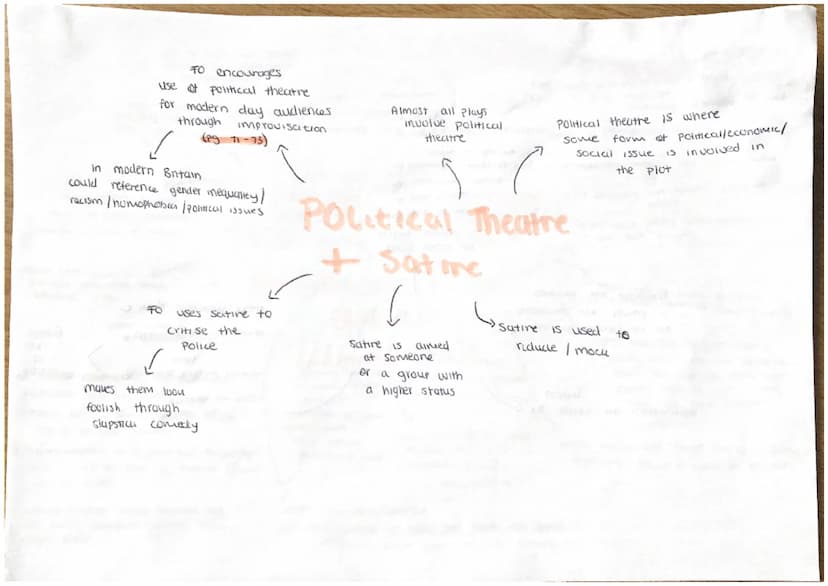 FO encourages
use of political theatre
for modern day audiences
through improvisation
(pg 71-73)
in modern Britain
could reference gender inequality/
racism/homophobia/political issues
Almost all plays
involve political
theatre
political theatre is where
some form of political/economic/
social issue is involved in
the plot
Political Theatre
+ Satire
FO uses satire to
critise the
Police
makes them look
foolish through
slapstick comedy
satire is aimed
at someone
or a group with
a higher status
satire is used to
ridicule / mock